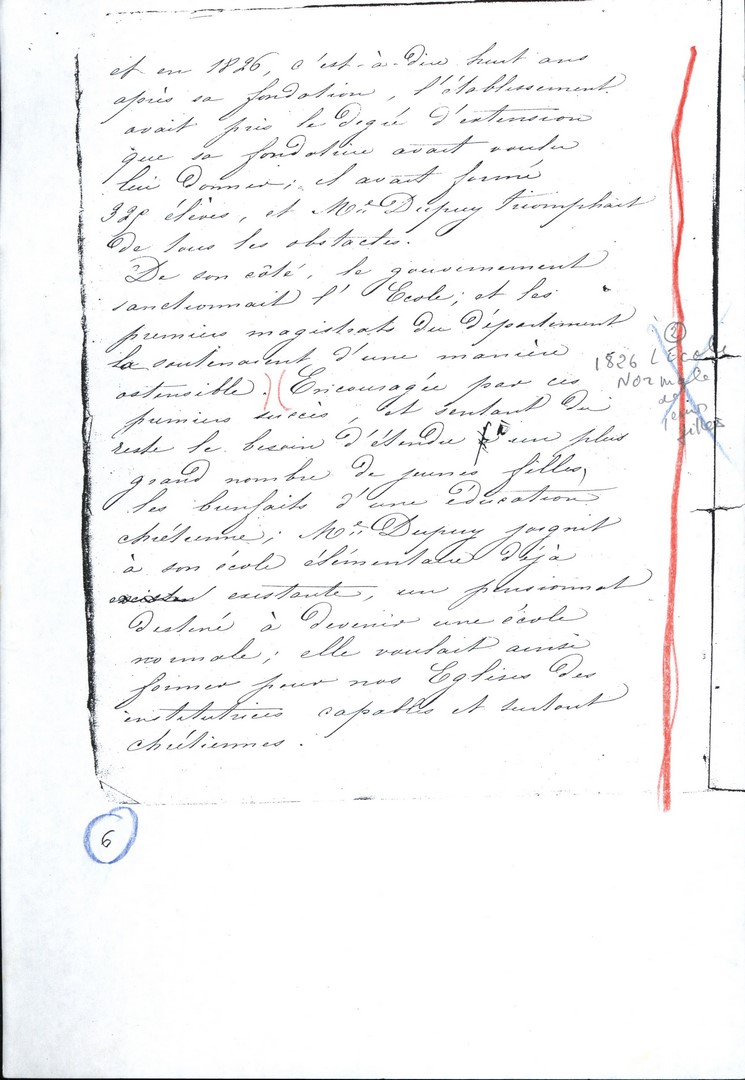 et en 1826, c'est-à-dire huit ans
après sa fondation, l'établissement
avait pris le degré d'extension
que sa fondatrice avait voulu
lui donner; il avait formé
élèves, et Me. Dupuy triomphait
de tous les obstacles.
De son côté, le gouvernement
sanctionnait l'Ecole; et les
premiers magistrats du département
la soutenaient d'une manière
ostensible. )( Encouragée par ces
premiers succès, et sentant du
reste le besoin d'étendre à un plus
grand nombre de jeunes filles,
les bienfaits d'une éducation
chrétienne; Me. Dupuy joignit
à son école élémentaire déjà
existante, un pensionnat
destiné à devenir une école
normale; elle voulait ainsi
former pour nos Eglises des
institutrices capables et surtout
chrétiennes.
2
1826 L'Ecole
Normale
de
jeunes
filles
6